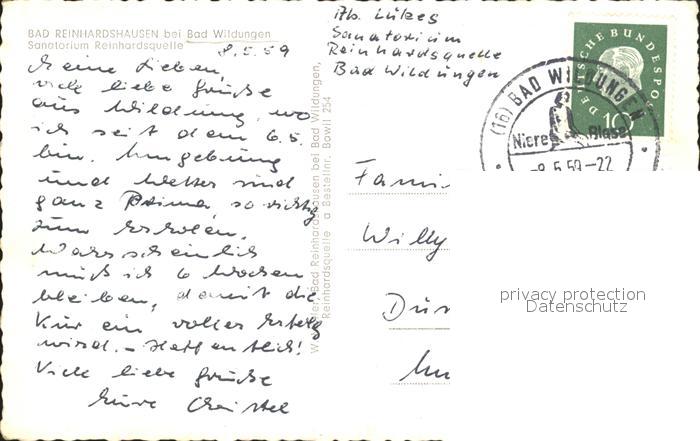 BAD REINHARDSHAUSEN bei Bad Wildungen
Sanatorium Reinhardsquelle
8.5.59
Meine Lieben,
viele liebe Grüsse
aus Wildung, wo
ich seit dem 6.5.
bin. Umgebung
und Wetter sind
ganz Prima, so richtig
zum Erholen.
Warscheinlich
muß ich 6 Wochen
bleiben, damit die
Kur ein voller Erfolg
wird. – Hoffentlich!
Viele liebe Grüsse
Eure Christel
Reinhardsquelle Bestellnr. Bowil 254
Abs. Lükes
Sanatorium
Reinhardsquelle
Bad Wildungen
DEUTSCHE BUNDESPOST
10
(16) BAD WILDUNGEN
Niere Blase
-8.5.59-22
Fami
Willy
Dür
privacy protection
Datenschutz